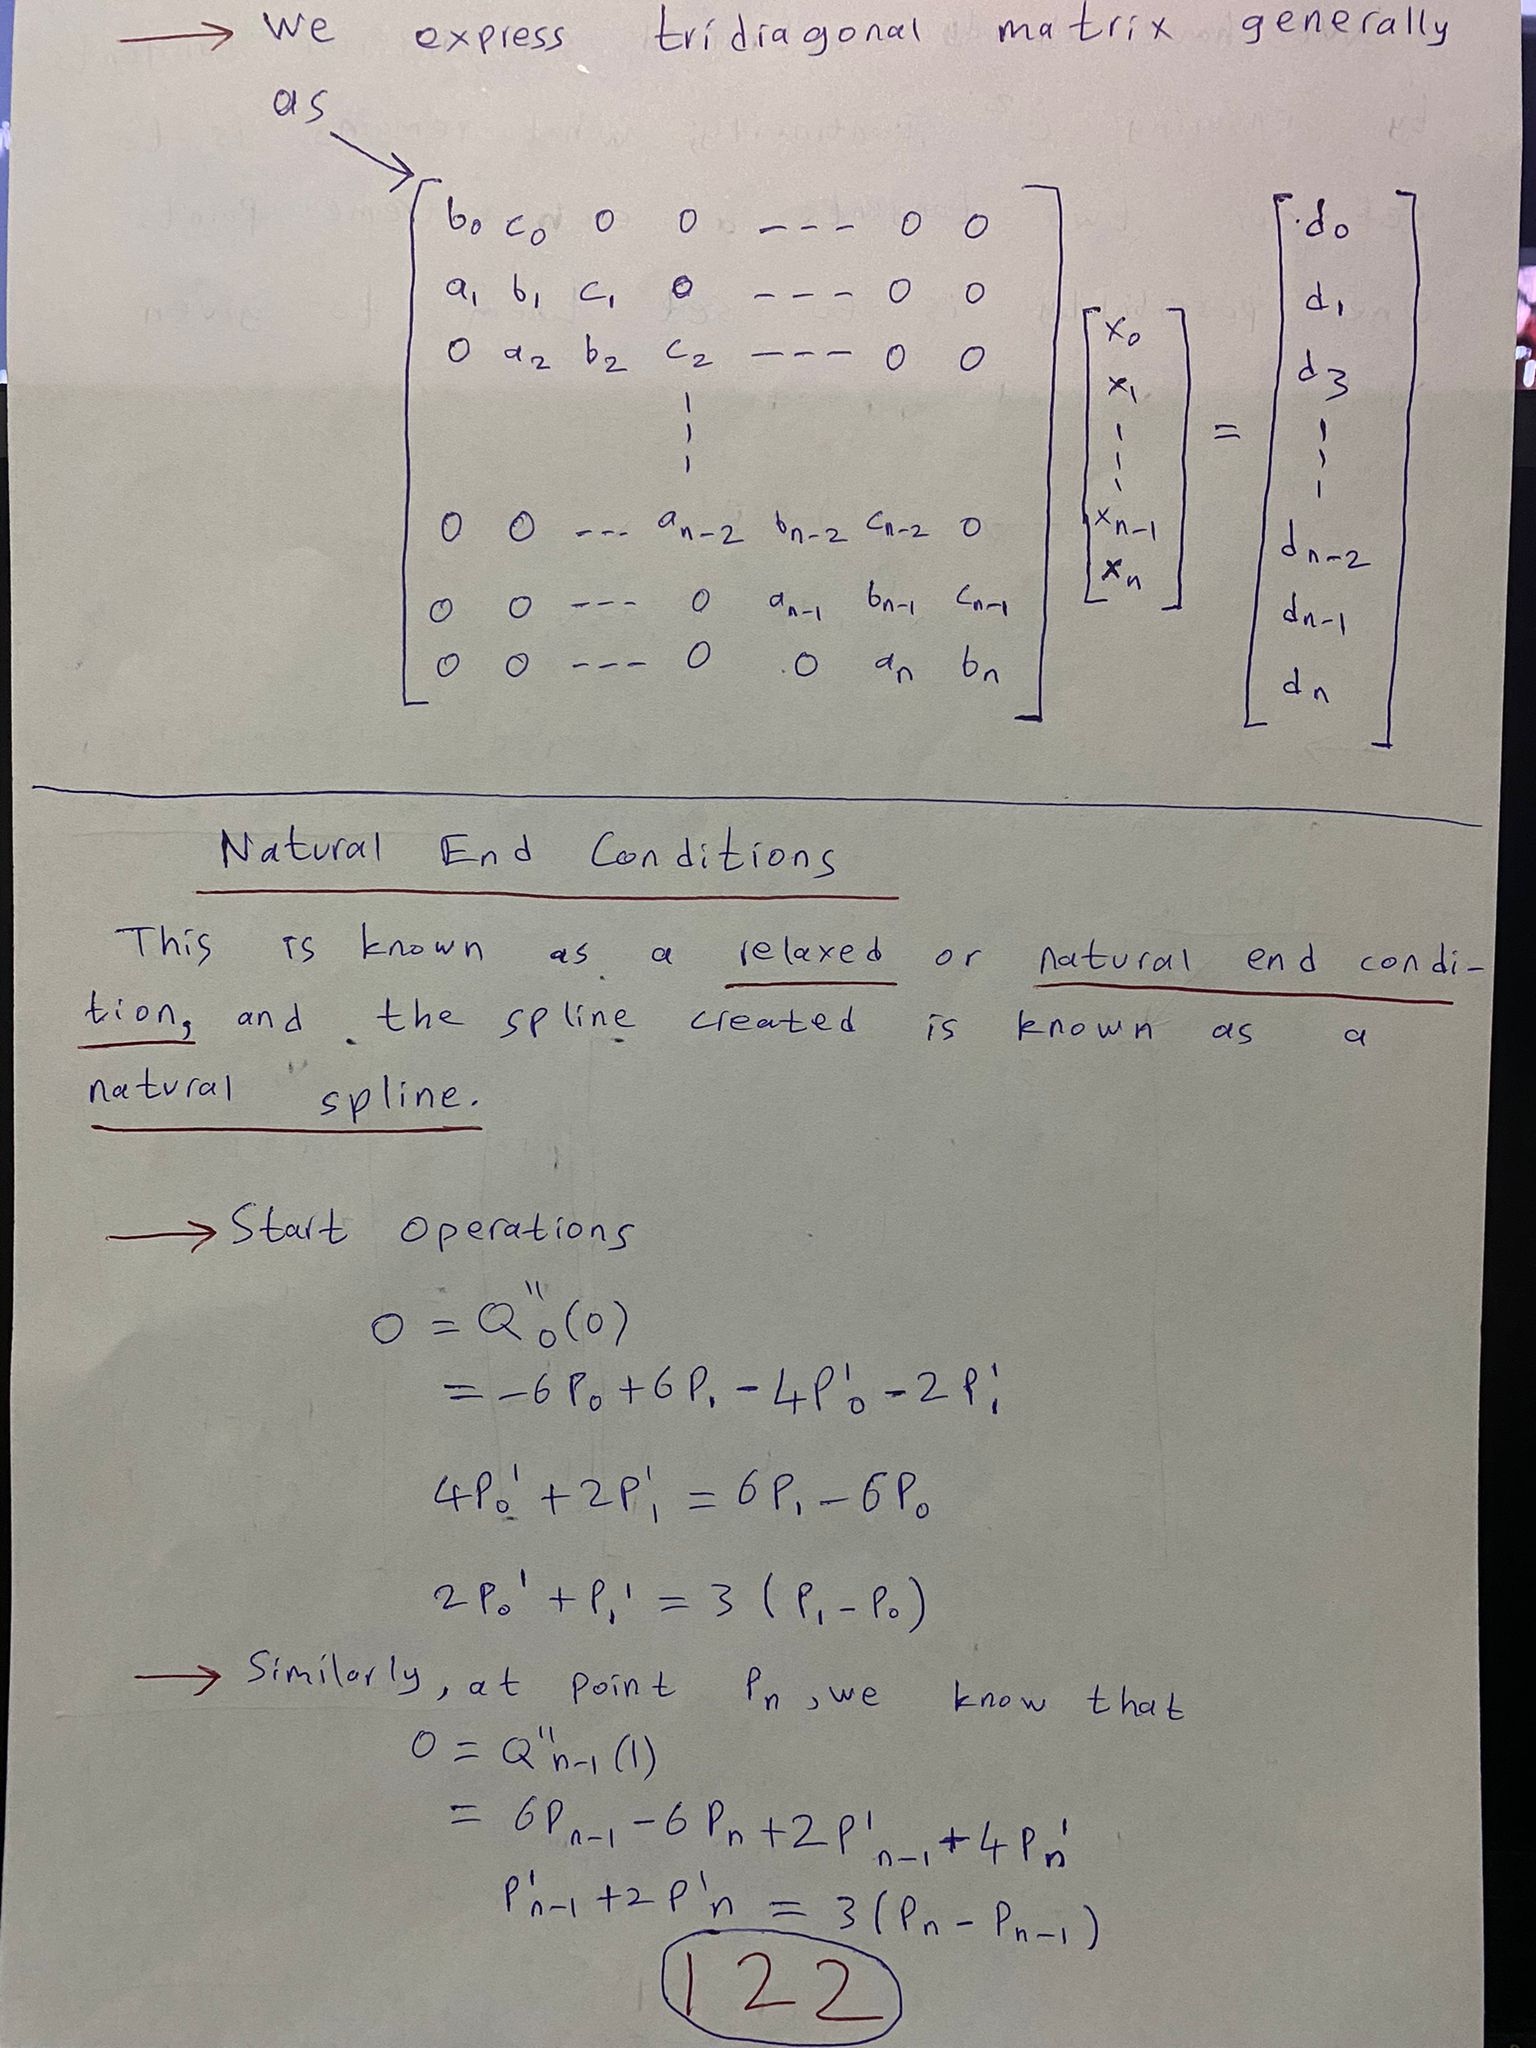 → We express tridiagonal matrix generally
as
b0 c0 0 0 --- 0 0
a1 b1 c1 0 --- 0 0
0 a2 b2 c2 --- 0 0
0 0 --- an-2 bn-2 cn-2 0
0 0 --- 0 an-1 bn-1 cn-1
0 0 --- 0 0 an bn
x0
x1
xn-1
xn
=
d0
d1
d3
dn-2
dn-1
dn
Natural End Conditions
This is known as a relaxed or natural end condi-
tion, and the spline created is known as a
natural spline.
→ Start operations
0 = Q''0(0)
= -6P0 + 6P1 - 4P'0 - 2P'1
4P0' + 2P'1 = 6P1 - 6P0
2P0' + P1' = 3(P1 - P0)
→ Similarly, at point Pn, we know that
0 = Q''n-1(1)
= 6Pn-1 - 6Pn + 2P'n-1 + 4Pn'
P'n-1 + 2P'n = 3(Pn - Pn-1)
122